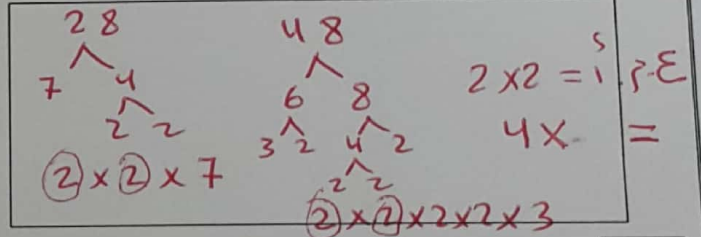 28
7 4
2 2
2 × 2 × 7
48
6 8
3 2 4 2
2 2
2 × 2 × 2 × 2 × 3
2 × 2 =
4 × =